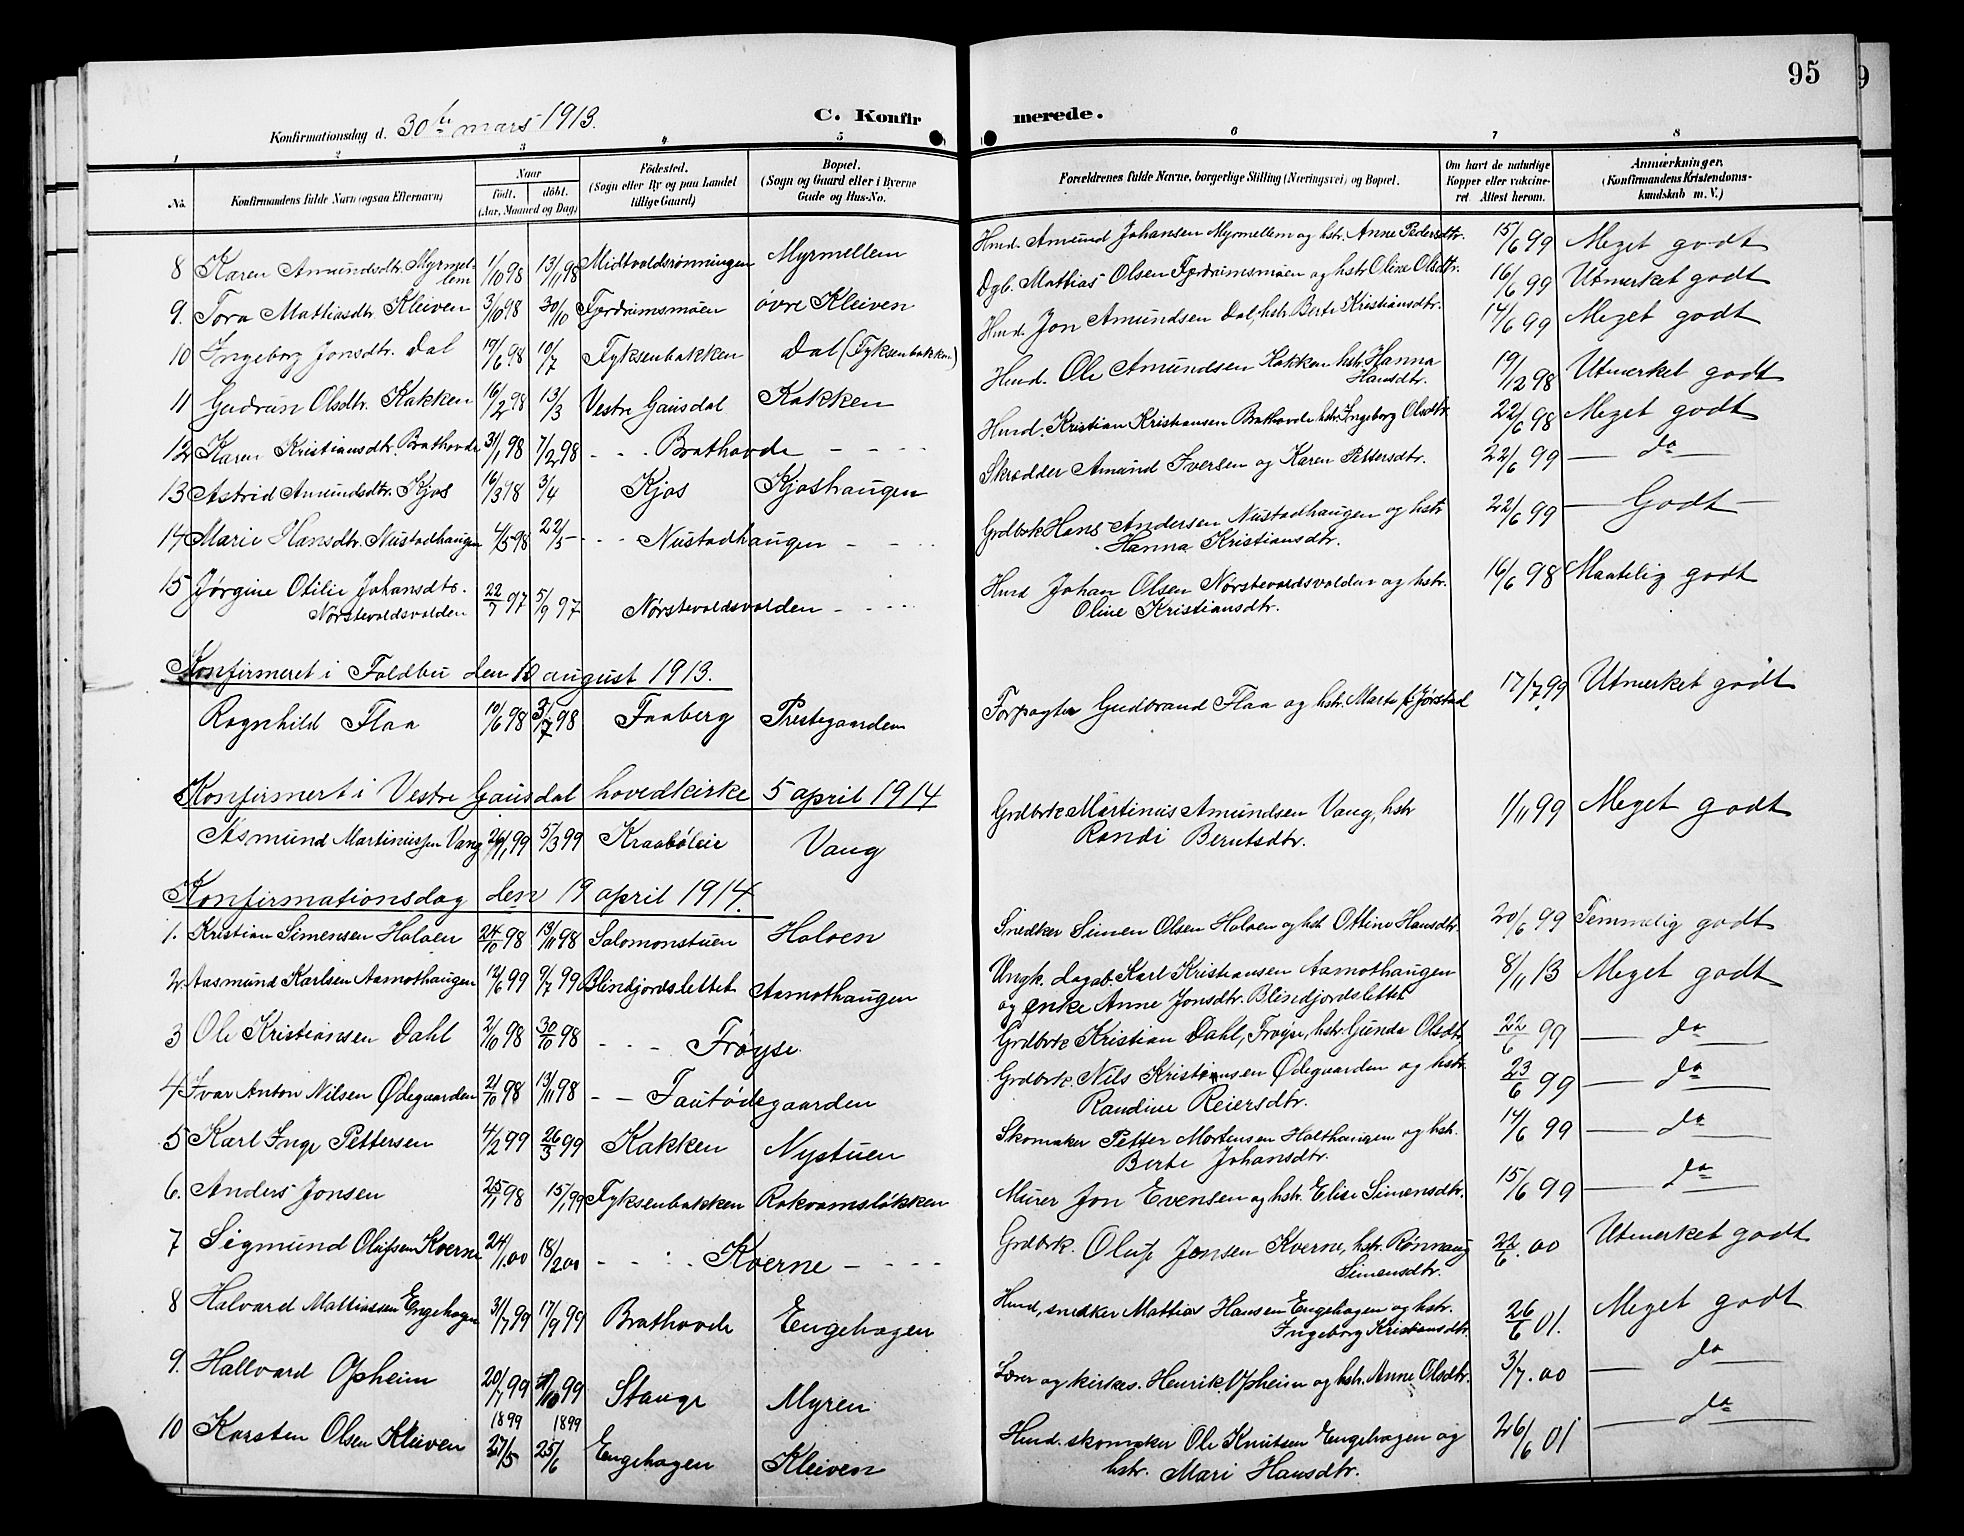 95
Konfirmationsdag d. 30te mars 1913.
C. Konfirmerede.
1 2 3 4 5 6 7 8
No.
Konfirmandens fulde Navn (ogsaa Efternavn)
Naar født. døbt. (Aar, Maaned og Dag)
Födested. (Sogn eller By og paa Landet tillige Gaard)
Bopæl. (Sogn og Gaard eller i Byerne Gade og Hus-No.
Forældrenes fulde Navne, borgerlige Stilling (Næringsvei) og Bopæl.
Om havt de naturlige Kopper eller vaccineret. Attest herom.
Anmærkninger. (Konfirmandens Kristendomskundskab m. V.)
8 Karen Amundsdtr. Myrmellem 1/10 98 13/11 98 Midtvoldsrønningen Myrmellem Hmd. Amund Johansen Myrmellem og hstr. Anne Pedersdtr. 15/6 99 Meget godt
9. Tora Mattiasdtr. Kleiven 3/10 98 30/10 Fjerdrumsmoen øvre Kleiven Dgb. Mattias Olsen Fjerdrumsmoen og hstr. Oline Olsdtr. 16/6 99 Utmerket godt
10 Ingeborg Jonsdtr. Dal 17/6 98 10/7 Fyksenbakken Dal (Fyksenbakken) Hmd. Jon Amundsen Dal, hstr. Berte Kristiansdtr. 14/6 99 Meget godt
11 Gudrun Olsdtr. Kakken 16/2 98 13/3 Vestre Gausdal Kakken Hmd. Ole Amundsen Kakken hstr. Hanna Hansdtr. 19/12 98 Utmerket godt
12 Karen Kristiansdtr. Brathovde 31/1 98 7/2 98 - - - Brathovde - - - - Hmd. Kristian Kristiansen Brathovde hstr. Ingeborg Olsdtr. 22/6 98 Meget godt
13 Astrid Amundsdtr. Kjos 16/3 98 3/4 Kjos Kjoshaugen Skrædder Amund Iversen og Karen Pettersdtr. 22/6 99 — do —
14 Marie Hansdtr. Nustadhaugen 4/5 98 22/5 - - - Nustadhaugen - - - Grdbrk Hans Andersen Nustadhaugen og hstr Hanna Kristiansdtr. 22/6 99 — Godt —
15 Jørgine Otilie Johansdtr. Norstevoldsvolden 22/7 97 5/9 97 Nørstevoldsvolden - - - - Hmd Johan Olsen Nørstevoldsvolden og hstr. Oline Kristiansdtr. 16/6 98 Maatelig godt
Konfirmeret i Foldbu den 10 august 1913.
Ragnhild Flaa 10/6 98 31/7 98 Faaberg Prestegaarden Forpagter Gudbrand Flaa og hstr. Marte f. Jørstad 17/7 99 Utmerket godt
Konfirmert i Vestre Gausdal hovedkirke 5 april 1914
Asmund Martinussen Vang 26/1 99 5/3 99 Kraabøleie Vang Grdbrk Martinus Amundsen Vang, hstr Randi Berntsdtr. 1/11 99 Meget godt
Konfirmationsdag den 19 april 1914.
1. Kristian Simensen Holoen 24/10 98 13/11 98 Salomonstuen Holoen Snedker Simen Olsen Holoen og hst Ottine Hansdtr. 20/6 99 Temmelig godt
2 Aasmund Karlsen Aamothaugen 12/6 99 9/7 99 Blindjordslettet Aamothaugen Ungk. dagab. Karl Kristiansen Aamothaugen og enke Anne Jonsdtr. Blindjordslettet 8/11 13 Meget godt
3 Ole Kristiansen Dahl 2/10 98 30/10 98 - - - Frøyse Grdbrk Kristian Dahl, Frøyse, hstr. Gunda Olsdt 22/6 99 — do —
4 Ivar Anton Nilsen Ødegaarden 21/10 98 13/11 98 - - Tautødegaarden Grdbrk. Nils Kristiansen Ødegaarden og hstr. Randine Reiersdtr. 23/6 99 — do —
5 Karl Inge Pettersen 4/2 99 26/3 99 Kakken Nystuen Skomaker Petter Mortensen Holthaugen og hstr. Berte Johansdtr. 14/6 99 — do —
6. Anders Jonsen 25/1 98 15/1 99 Fyksenbakken Rokvamsløkken Murer Jon Evensen og hstr. Elise Simensdtr. 15/6 99 — do —
7 Sigmund Olufsen Kverne 24/1 00 18/2 00 - - - - Kverne - - - - Grdbrk. Oluf Jonsen Kverne, hstr. Rønnaug Simensdtr. 22/6. 00 Utmerket godt
8 Halvard Mattiassen Engehagen 31/7 99 17/9 99 Brathovde Engehagen Hmd, snedker Mattias Hansen Engehagen og hstr. Ingeborg Kristiansdtr. 26/6 01. Meget godt
9. Hallvard Opheim 20/7 99 /10 99 Stange Myren Lærer og kirkes. Henrik Opheim og hstr. Anne Olsdtr. 3/7. 00 — do —
10 Karsten Olsen Kleiven 1899 27/5 1899 25/6 Engehagen Kleiven Hmd. skomaker Ole Knutsen Engehagen og hstr. Mari Hansdtr. 26/6 01 — do —